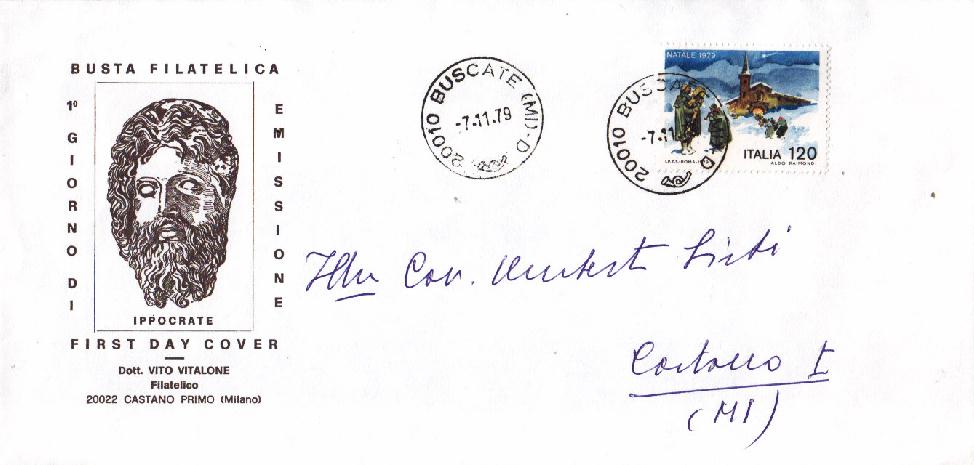 BUSTA FILATELICA
1º GIORNO DI
EMISSIONE
IPPOCRATE
FIRST DAY COVER
Dott. VITO VITALONE
Filatelico
20022 CASTANO PRIMO (Milano)
20010 BUSCATE (MI)-D
-7.11.79
NATALE 1979
20010 BUSCA D
-7.11
ITALIA 120
ALDO RAIMONDI
Ill.mo Cav.
Castano I
(MI)